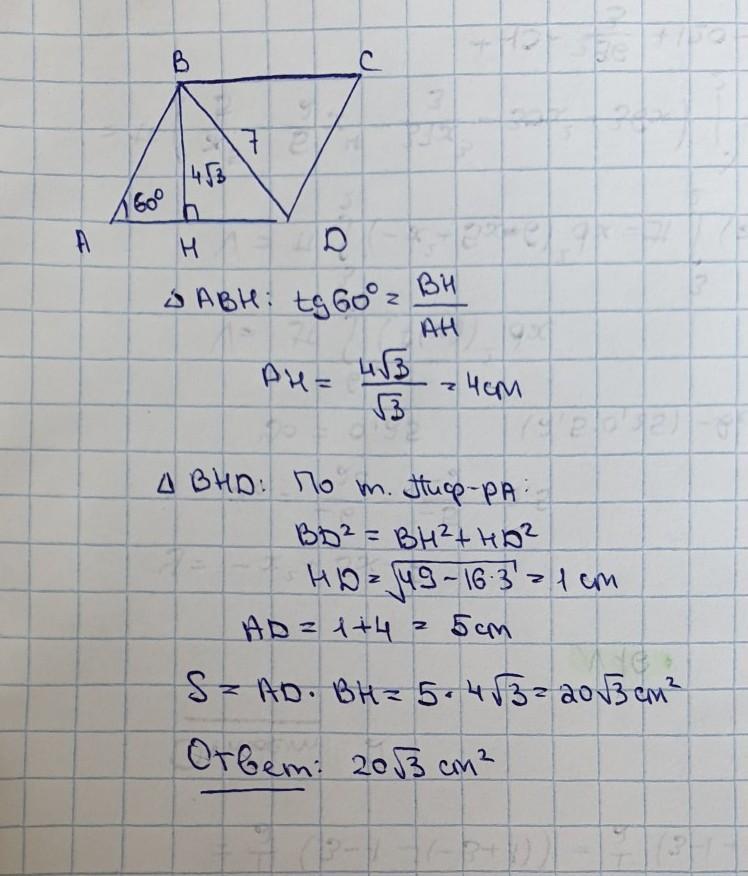 B C
7
4√3
60°
A H D
△ ABH: tg60° = BH/AH
AH = 4√3/√3 = 4см
△ BHD: По т. Пиф-ра:
BD² = BH² + HD²
HD = √49-16·3 = 1 см
AD = 1+4 = 5см
S = AD · BH = 5 · 4√3 = 20√3 см²
Ответ: 20√3 см²